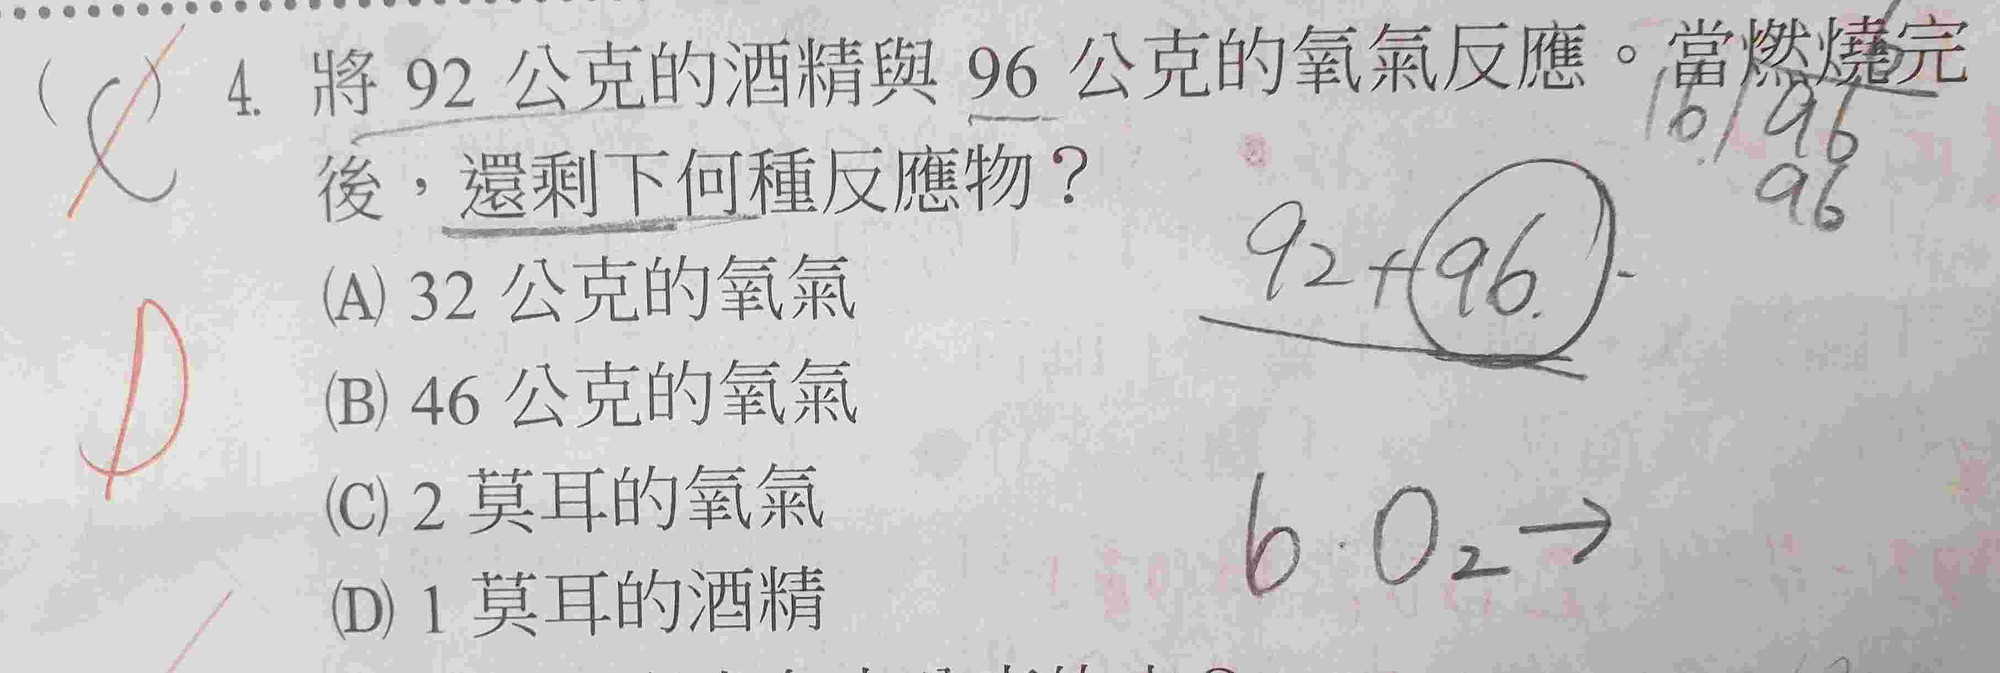 (C) 4. 將 92 公克的酒精與 96 公克的氧氣反應。當燃燒完
後，還剩下何種反應物？
(A) 32 公克的氧氣
(B) 46 公克的氧氣
(C) 2 莫耳的氧氣
(D) 1 莫耳的酒精
D
16/96
96
92+96.
6 O₂→